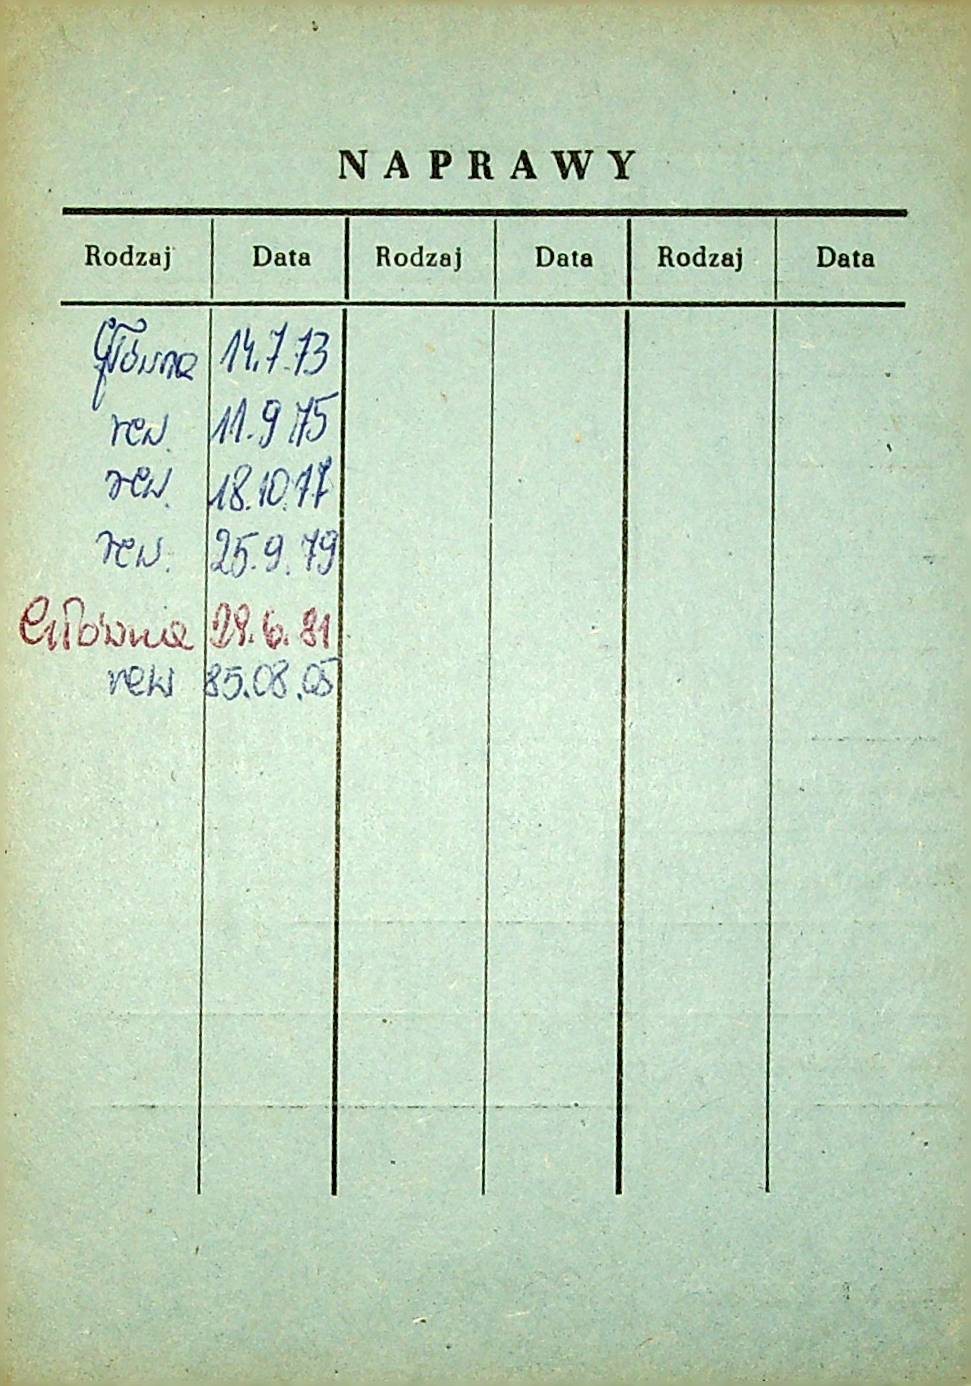 NAPRAWY
Rodzaj Data Rodzaj Data Rodzaj Data
Główna 14.7.73
rew. 11.9.75
rew. 18.10.77
rew. 25.9.79
Główna 29.6.81
rew 85.08.05